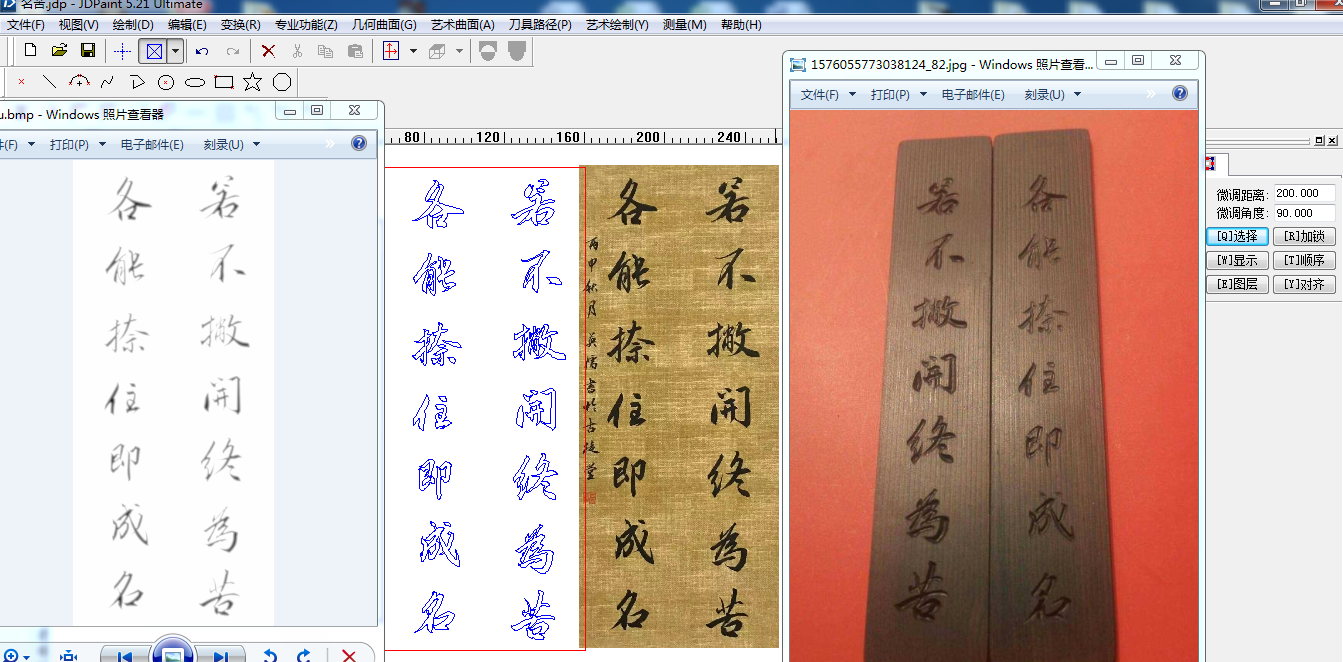 名苦.jdp - JDPaint 5.21 Ultimate
文件(F) 视图(V) 绘制(D) 编辑(E) 变换(R) 专业功能(Z) 几何曲面(G) 艺术曲面(A) 刀具路径(P) 艺术绘制(Y) 测量(M) 帮助(H)
u.bmp - Windows 照片查看器
(F) 打印(P) 电子邮件(E) 刻录(U)
若不撇開終為苦
各能捺住即成名
80 120 160 200 240
若不撇開終為苦
各能捺住即成名
若不撇開終為苦
各能捺住即成名
丙申秋月
1576055773038124_82.jpg - Windows 照片查看...
文件(F) 打印(P) 电子邮件(E) 刻录(U)
各能捺住即成名
若不撇開終為苦
微调距离: 200.000
微调角度: 90.000
[Q]选择 [R]加锁
[W]显示 [T]顺序
[E]图层 [Y]对齐